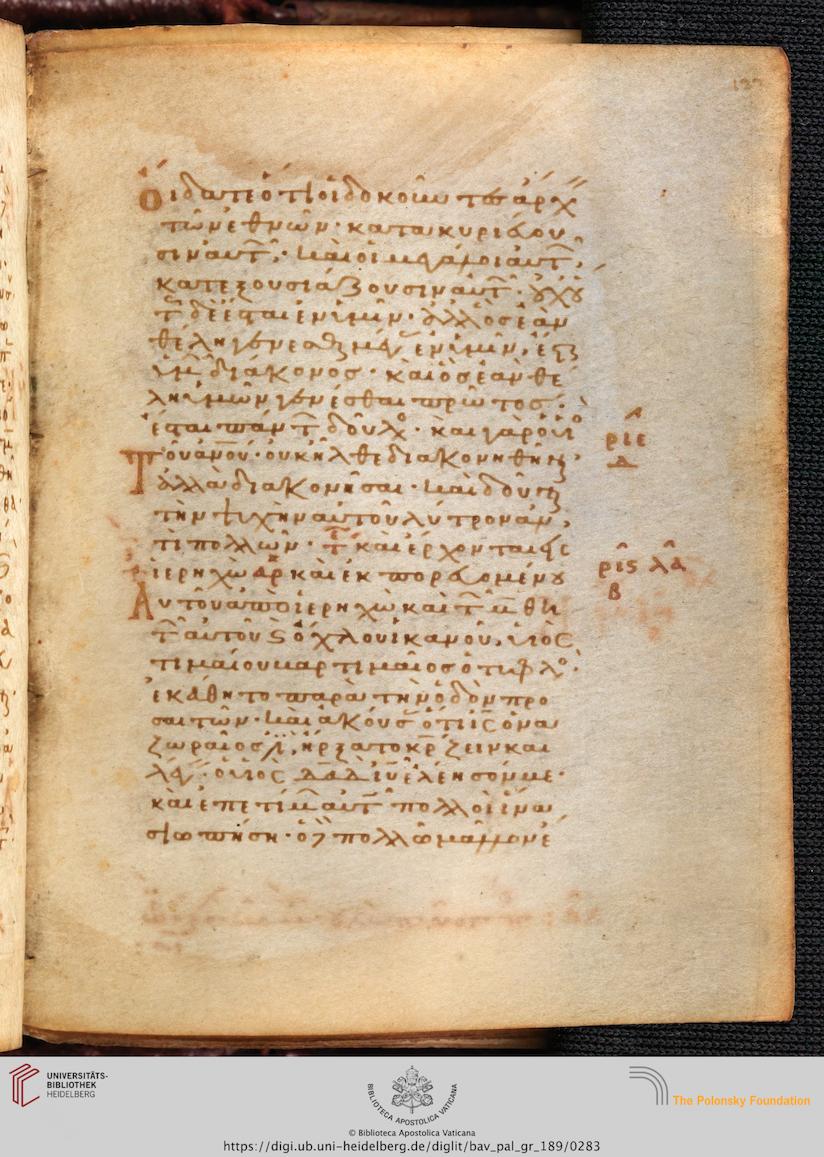 οἴδατε ὅτι οἱ δοκοῦν τ ἀρχ
τῶν ἐθνῶν· κατακυριεύου
σιν αὐτ· καὶ οἱ μεγάλοι αὐτ
κατεξουσιάζουσιν αὐτ· οὐχ οὕ
τ δὲ ἔσται ἐν ὑμῖν· ἀλλ ὃς ἐὰν
θέλη γενέσθαι μέγ ἐν ὑμῖν, ἔσται
ὑμ διάκονος· καὶ ὃς ἐὰν θέ
λη ὑμῶν γενέσθαι πρῶτος·
ἔσται πάντ δοῦλο· καὶ γὰρ ὁ υἱο
τοῦ ἀνου· οὐκ ἦλθε διακονηθῆναι
ἀλλὰ διακονῆσαι· καὶ δοῦναι
τὴν ψυχὴν αὐτοῦ λύτρον ἀν
τὶ πολλῶν· τ καὶ ἔρχονται εἰς
ἱερηχὼ αρ καὶ ἐκπορευομένου
αὐτοῦ ἀπὸ ἱερηχὼ καὶ τ μαθη
τ αὐτοῦ ϛ ὄχλου ἱκανοῦ, υἱὸς
τιμαίου μαρτιμαῖος ὁ τυφλο
ἐκάθητο παρὰ τὴν ὁδὸν προ
σαιτῶν· καὶ ἀκούσ ὅτι ις ὁ να
ζωραῖος ἤρξατο κρ ζειν καὶ
λέγ· ὁ υἱὸς δαδ ιυ ἐλέησόν με·
καὶ ἐπετίμ αὐτ πολλοὶ ἵνα
σιωπήση· ὁ δὲ πολλῶ μᾶλλον ἔ
ριε
δ
ριϛ λα
β
UNIVERSITÄTS-
BIBLIOTHEK
HEIDELBERG
BIBLIOTECA APOSTOLICA VATICANA
The Polonsky Foundation
© Biblioteca Apostolica Vaticana
https://digi.ub.uni-heidelberg.de/diglit/bav_pal_gr_189/0283